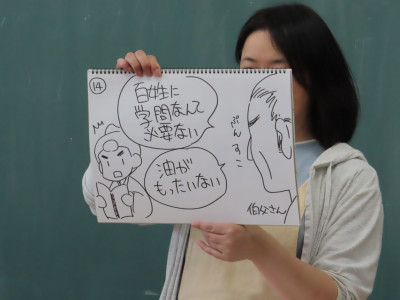 ⑭
百姓に
学問なんて
必要ない
油が
もったいない
ぷんすこ
伯父さん